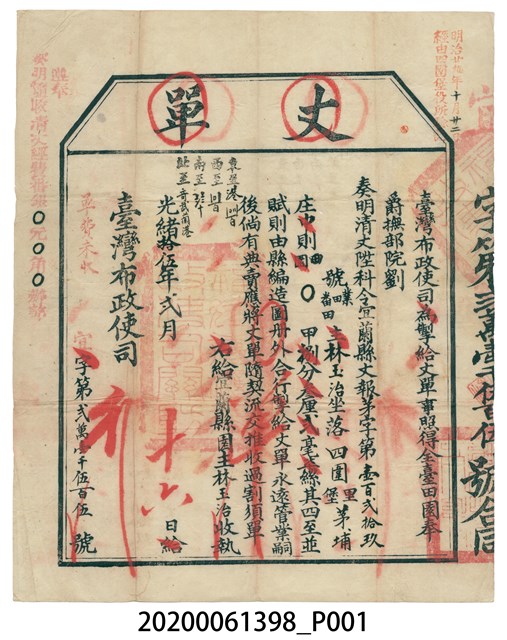 丈單
臺灣布政使司為掣給丈單事照得全臺田園奉
爵撫部院劉
奏明清丈陞科今宜蘭縣丈報茅字第壹百弍拾玖
號業田主林玉治坐落四圍里堡茅埔
庄中則田〇甲捌分
厘弍毫
絲其四至並
賦則由縣編造圖冊外合行掣給丈單永遠管業嗣
後倘有典賣應將丈單隨契流交推收過割須單
右給宜蘭縣園主林玉治收執
東至港
西至
南至
北至
光緒拾伍年弍月十六日給
臺灣布政使司
字第弍萬壹千伍百伍號
單費未收
明治廿
年十月廿二
經由四圍堡役所
字第
萬壹千伍百伍號合同
20200061398_P001